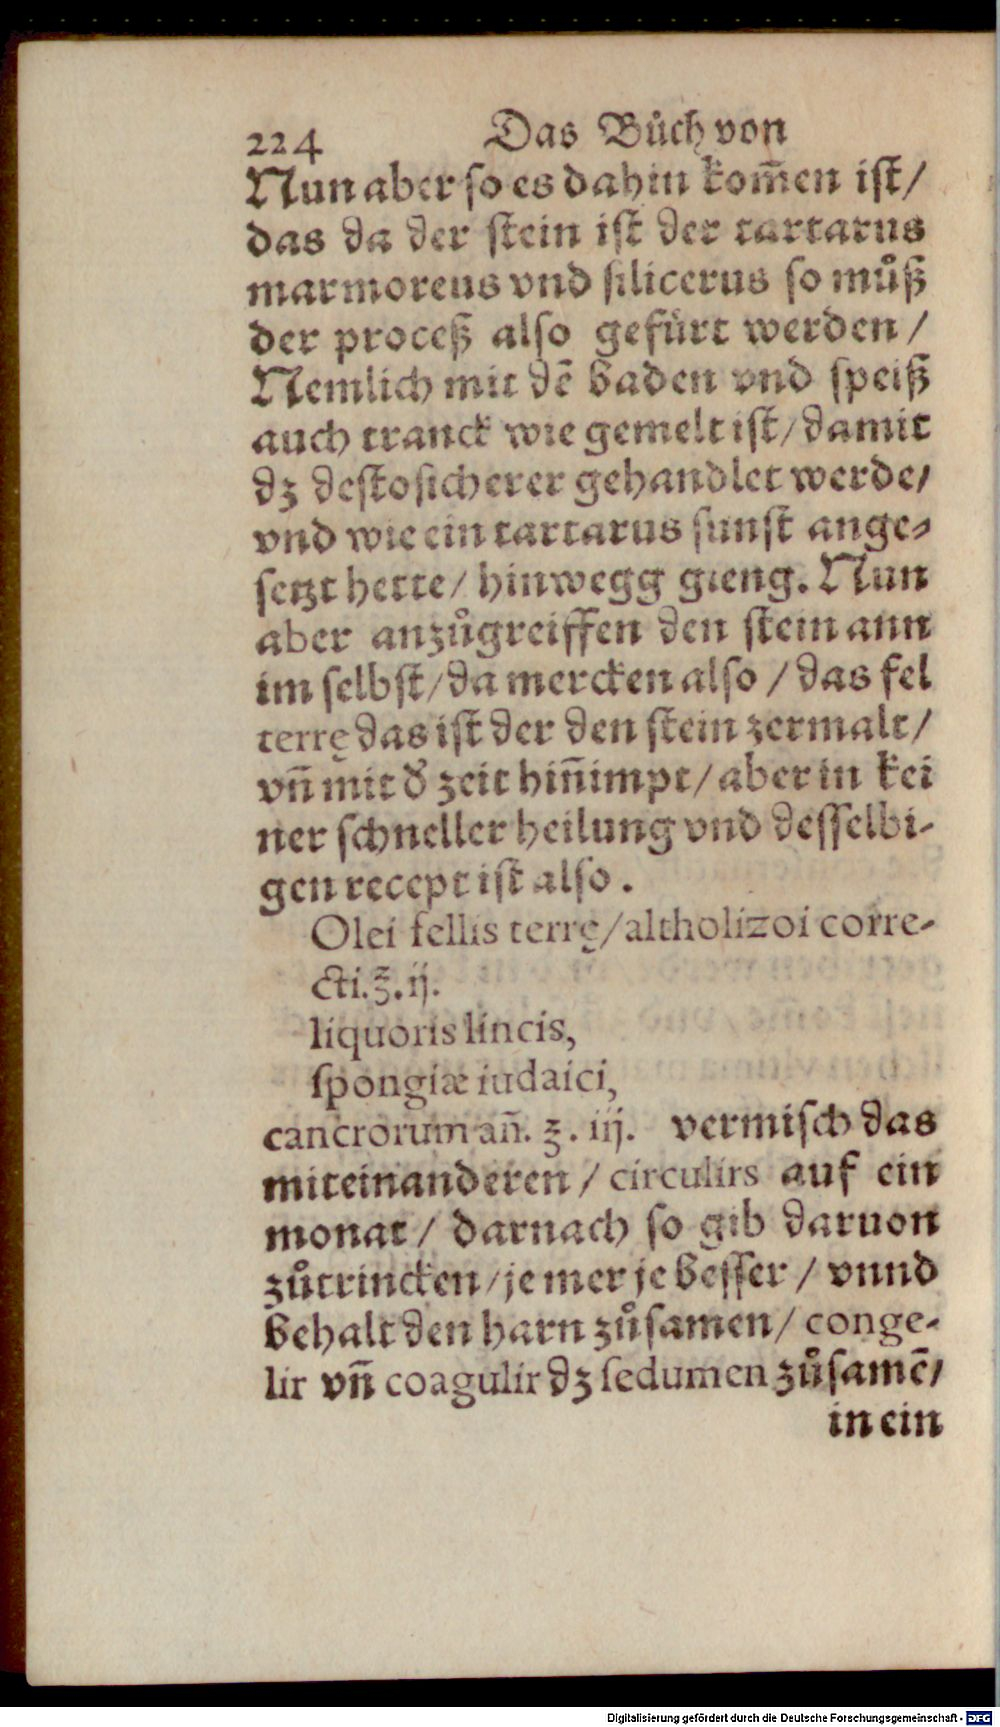 224 Das Bůch von
Nun aber so es dahin kom̃en ist/
das da der stein ist der tartarus
marmoreus vnd silicerus so můß
der proceß also gefürt werden/
Nemlich mit dẽ baden vnd speiß
auch tranck wie gemelt ist/damit
dz destosicherer gehandlet werde/
vnd wie ein tartarus sunst ange-
setzt hette/hinwegg gieng. Nun
aber anzůgreiffen den stein ann
im selbst/da mercken also/das fel
terrę das ist der den stein zermalt/
vñ mit d̕ zeit hiñimpt/aber in kei
ner schneller heilung vnd desselbi-
gen recept ist also.
Olei fellis terrę/altholizoi corre-
cti.ʒ̃.ij.
liquoris lincis,
spongiæ iudaici,
cancrorum añ. ʒ. iij. vermisch das
miteinanderen/circulirs auf ein
monat/darnach so gib daruon
zůtrincken/je mer je besser/vnnd
behalt den harn zůsamen/conge-
lir vñ coagulir dz sedumen zůsamẽ/
in ein
Digitalisierung gefördert durch die Deutsche Forschungsgemeinschaft - DFG